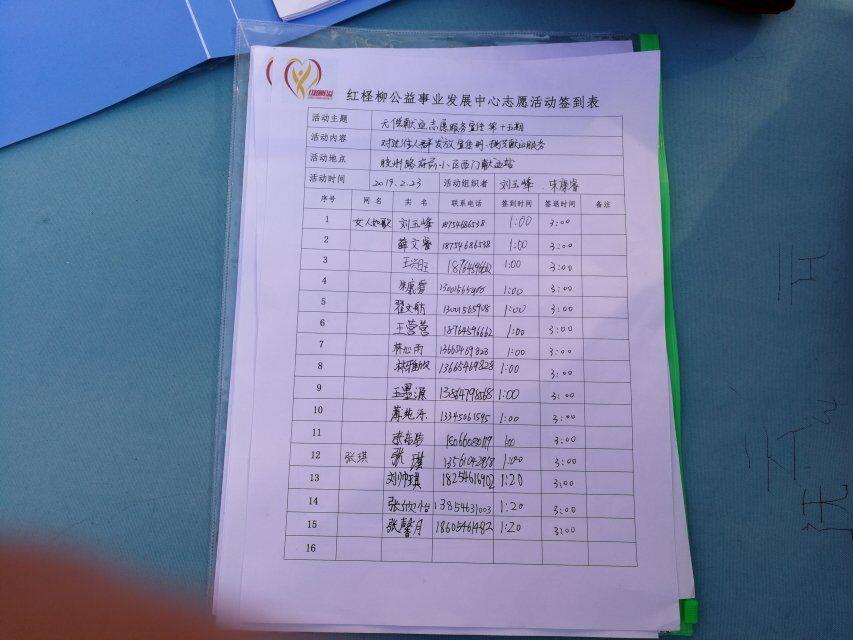 红柽柳公益事业发展中心志愿活动签到表
活动主题 无偿献血志愿服务宣传第十五期
活动内容 对过往人群发放宣传册、献血服务
活动地点 胶州路府前小区西门献血站
活动时间 2019.2.23 活动组织者 刘玉峰 宋康睿
序号 网名 实名 联系电话 签到时间 签退时间 备注
1 女人如歌 刘玉峰 18754686538 1:00 3:00
2 薛文睿 18754686538 1:00 3:00
3 王兴旺 18764596662 1:00 3:00
4 宋康睿 1:00 3:00
5 翟文韬 13001565908 1:00 3:00
6 王营营 18764596662 1:00 3:00
7 林心雨 13665469828 1:00 3:00
8 13665469828 1:00 3:00
9 王墨源 1:00 3:00
10 13345061595 1:00 3:00
11 3:00
12 张琪 张琪 1:00 3:00
13 刘帅琪 18254616902 1:20 3:00
14 张欣怡 13854631003 1:20 3:00
15 张馨月 18605461482 1:20 3:00
16